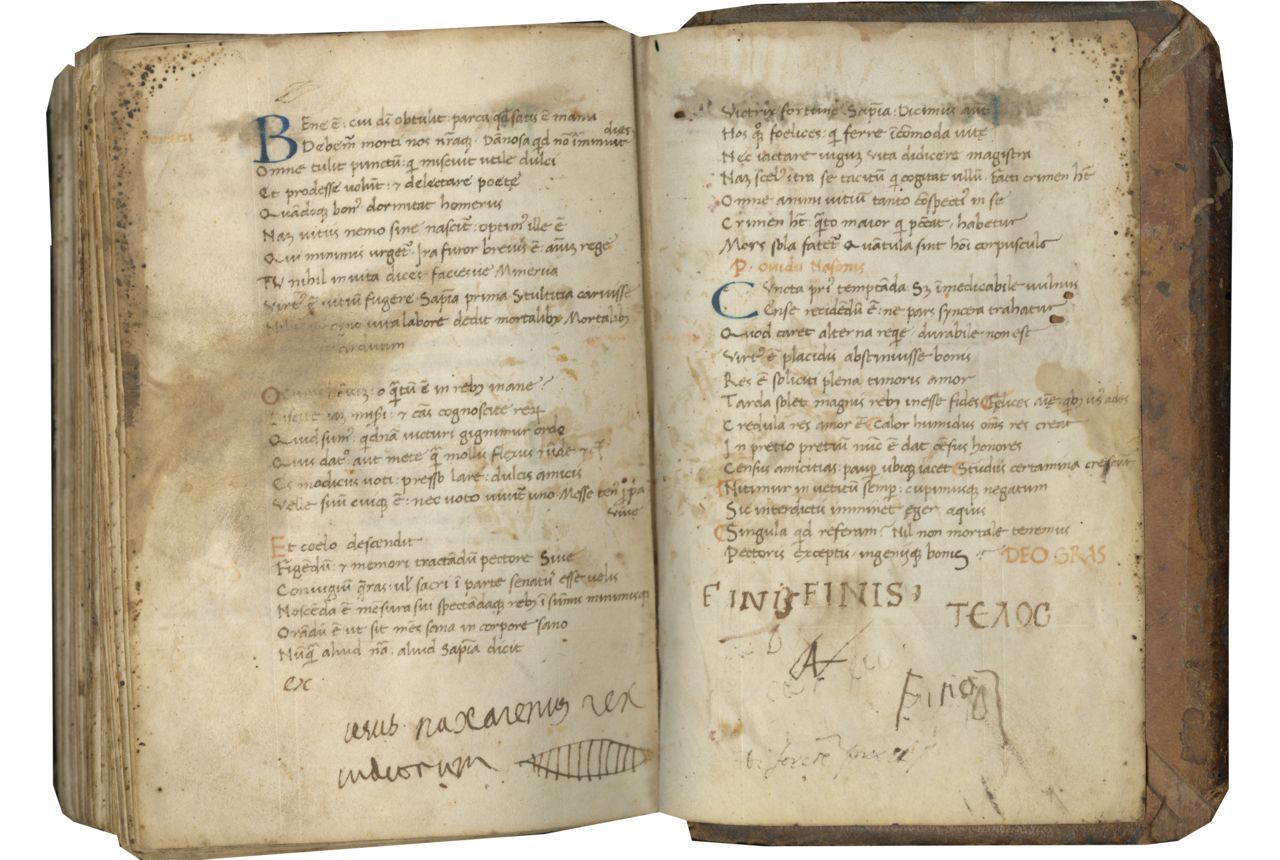 BEne ē: cui ds̄ obtulit parca qđ satis ē manu
Debem̄ morti nos nr̄aqꝫ. Dānosa qđ nō īminuit
dies
Omne tulit punctū: qͥ miscuit utile dulci
Et prodesse uolūt: & delectare poetę
Quādoqꝫ bonꝰ dormitat homerus
Naꝫ vitiis nemo sine nascit᷑: optimꝰ ille ē
Qui minimis urget᷑. Ira furor breuis ē: animū rege
Tu nihil inuita dices: faciesue Minerua
Virtꝰ ē uitiū fugere. Sapīa prima stultitia caruisse
uita labore dedit mortalibꝫ Mortalibꝫ
arduum
O curas: o qͣ̄tū ē in rebꝫ inane?
Discite: & cās cognoscite rerꝝ
Quid sumꝰ: qͥdnā victuri gignimur ordo
Quis datꝰ: aut mete qͣ̄ mollis flexus & un̄de
Es modicus uoti: presso lare: dulcis amicis
Velle suū cuiqꝫ ē: nec uoto uiuit᷑ uno. Messe ten᷑
uiue
Et coelo descendit
Figēdū & memori tractādū pectore Siue
Coniugiū: ul᷑ sacri ī parte senatꝰ esse uelis
Noscēda ē mēsura sui spectādaqꝫ rebꝫ ī summis minimisqꝫ
Orādū ē ut sit mēs sana in corpore sano
Nūqͣ̄ aliud nā: aliud Sapīa dicit
ex
iesus naxarenus rex
iudeorum
Victrix fortunę Sapīa: Dicimus aūt
Hos qͦqꝫ foelices: qͥ ferre īcōmoda uitę
Nec iactare iuguꝫ uita didicere magistra
Naꝫ scelꝰ ītra se tacitū qͥ cogitat ullū. facti crimen ht̄
Omne animi uitiū tanto cōspectiꝰ in se
Crimen ht̄: qͣ̄to maior qͥ peccat, habetur
Mors sola fatet᷑ Quātula sint hōi corpuscula
P. Ouidii Nasonis
CVncta priꝰ temptāda: Sꝫ īmedicabile uulnus
Ense recidēdū ē: ne pars syncera trahatur
Quod caret alterna reqͥe: durabile non est
Virtꝰ ē placidis abstinuisse bonis
Res ē soliciti plena timoris amor
Tarda solet magnis rebꝫ inesse fides
Credula res amor ē Calor humidus oīnis res creat
In pretio pretiū nūc ē: dat cēsus honores
Census amicitias: paup̱ ubiqꝫ iacet Studiis certamina crescūt
Nitimur in uetitū semp̱: cupimusqꝫ negatum
Sic interdictis imminet ęger aquis
Singula qͥd referam? Nil non mortale tenemus
Pectoris exceptis, ingeniiqꝫ bonis :· DEO GRAS
FINIS FINIS
ΤΕΛΟC